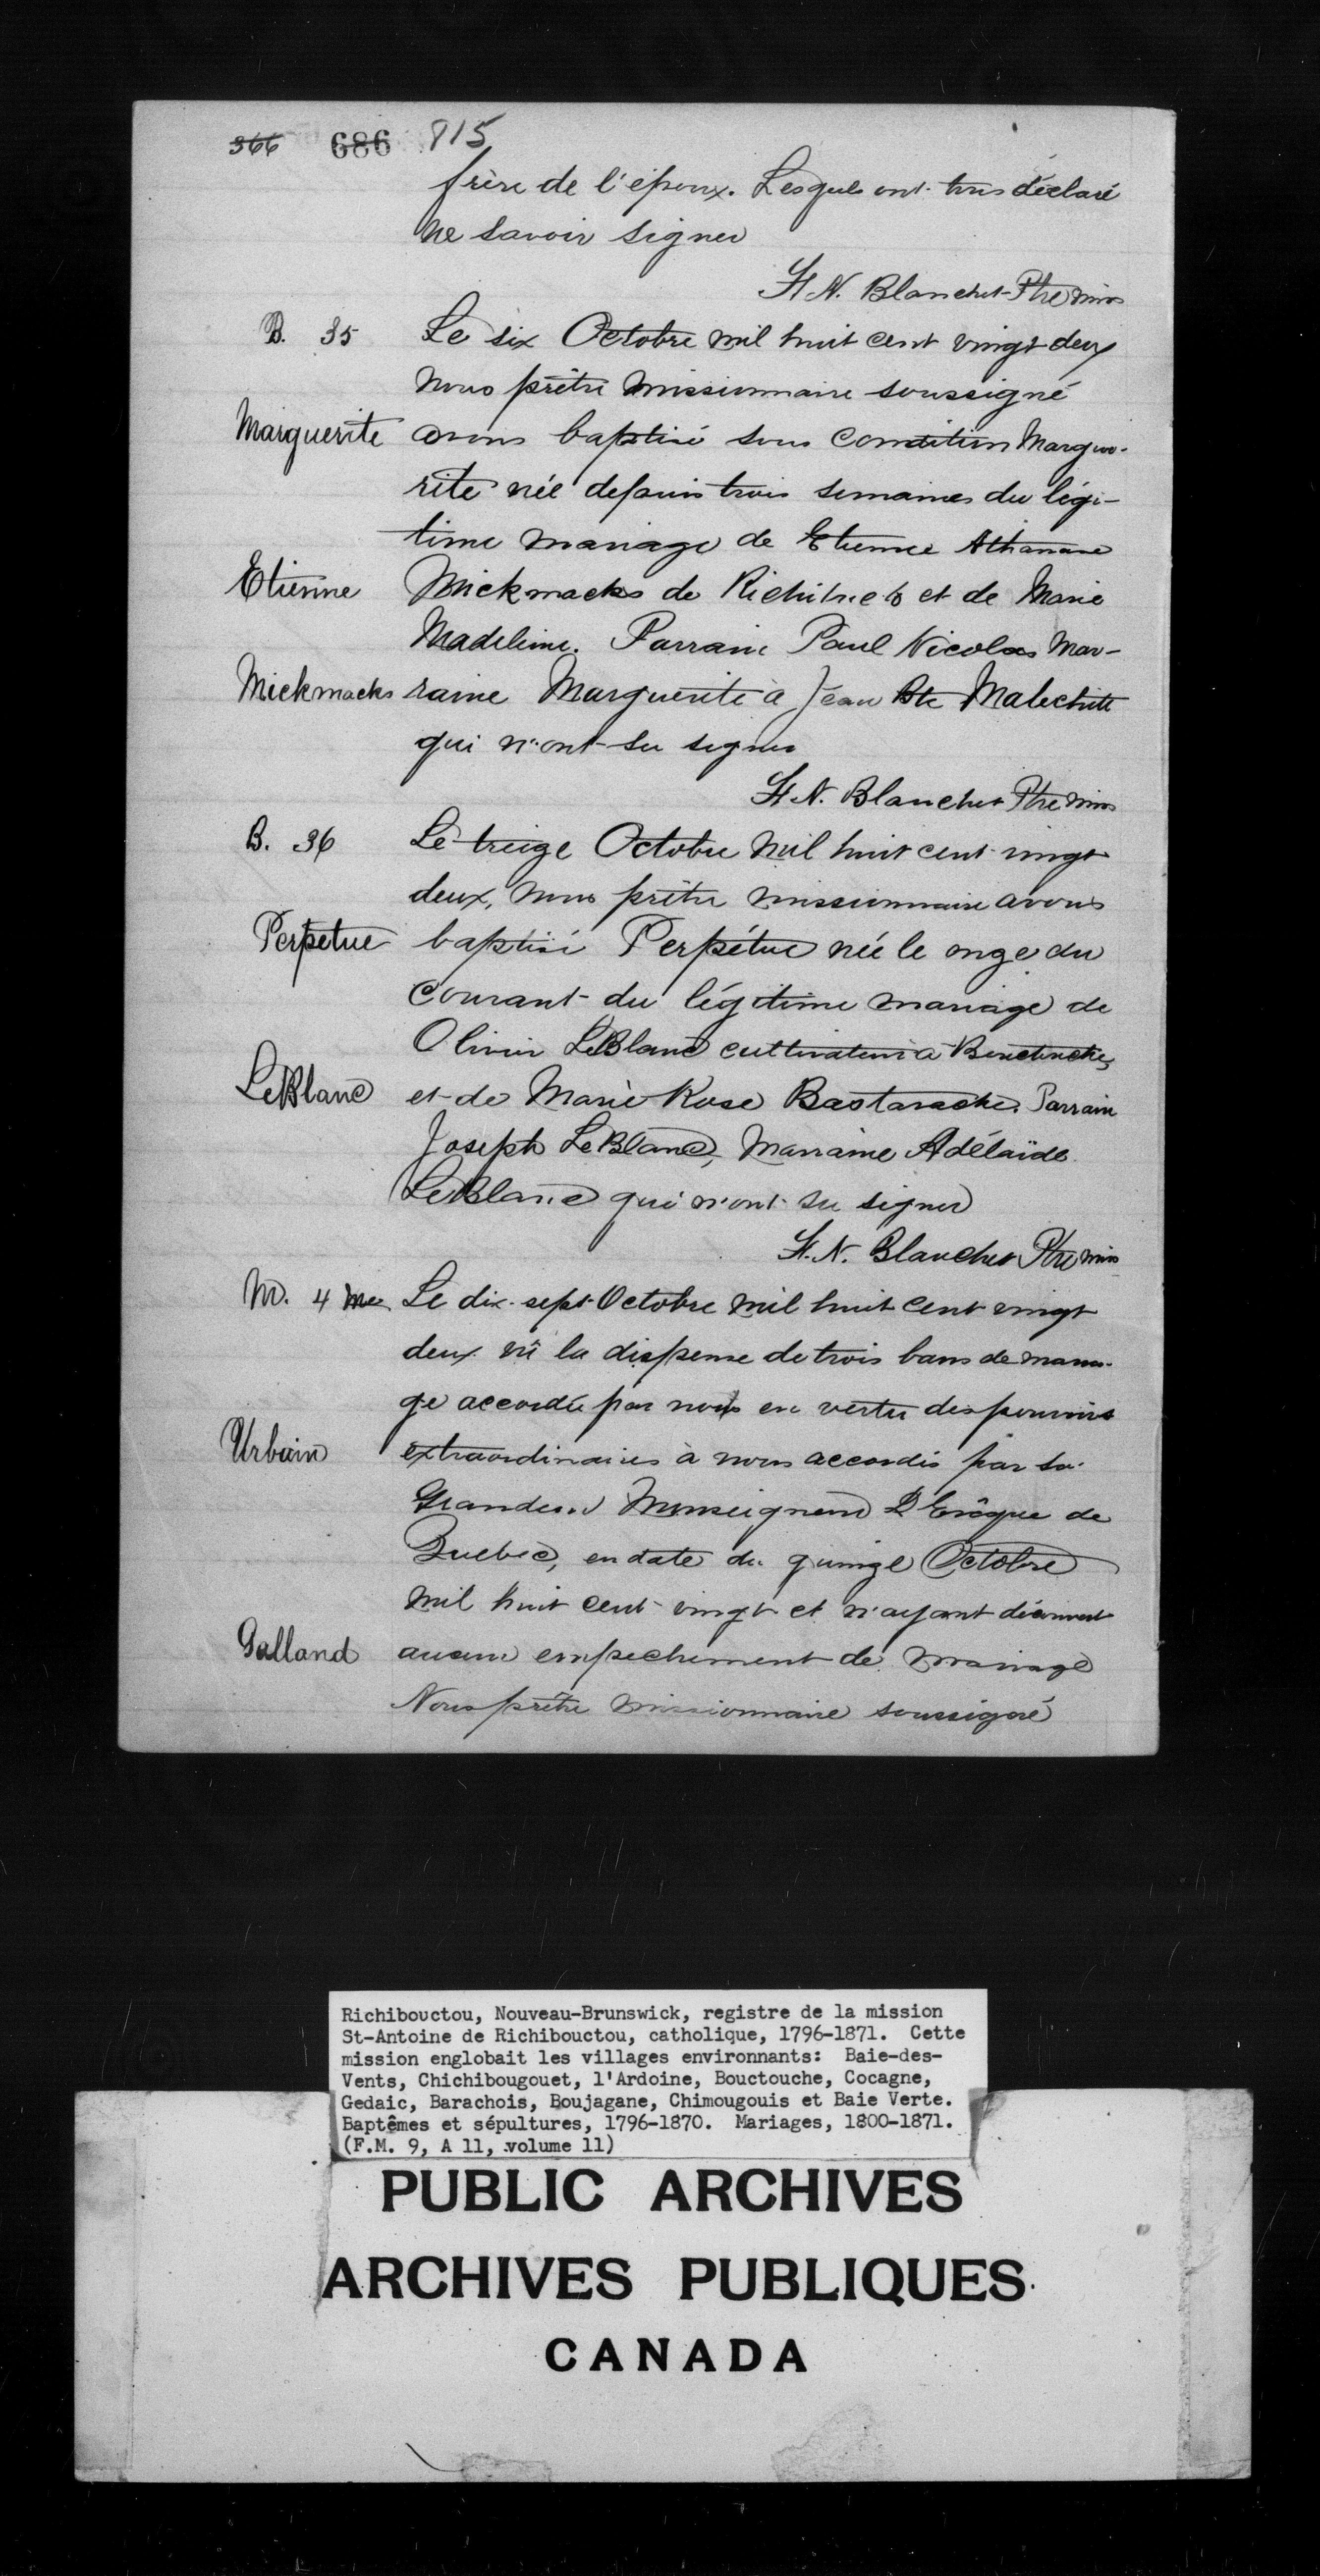 366 686 815
frère de l'époux. Lesquels ont tous déclaré
ne savoir signer
F. N. Blanchet Ptre Miss
B. 35 Le six Octobre mil huit cent vingt deux
nous prêtre missionnaire soussigné
Marguerite avons baptisé sous condition Margue-
rite née depuis trois semaines du légi-
time mariage de Etienne Athanase
Etienne Mickmacks de Richibucto et de Marie
Madeleine. Parrain Paul Nicolas Mar-
Mickmacks raine Marguerite à Jean Bte Malechite
qui n'ont su signer
F. N. Blanchet Ptre Miss
B. 36 Le treize Octobre mil huit cent vingt
deux, nous prêtre missionnaire avons
Perpetue baptisé Perpétue née le onze du
courant du légitime mariage de
Olivier LeBlanc cultivateur à Bouctouche
LeBlanc et de Marie Rose Bastarache. Parrain
Joseph LeBlanc, Marraine Adélaïde
LeBlanc qui n'ont su signer
F. N. Blanchet Ptre Miss
M. 4 me Le dix-sept Octobre mil huit cent vingt
deux vû la dispense de trois bans de maria-
ge accordée par nous en vertu des pouvoirs
Urbain extraordinaires à nous accordés par sa
Grandeur Monseigneur L'Evêque de
Quebec, en date du quinze Octobre
mil huit cent vingt et n'ayant découvert
Galland aucun empechement de mariage
Nous prêtre missionnaire soussigné
Richibouctou, Nouveau-Brunswick, registre de la mission
St-Antoine de Richibouctou, catholique, 1796-1871. Cette
mission englobait les villages environnants: Baie-des-
Vents, Chichibougouet, l'Ardoine, Bouctouche, Cocagne,
Gedaic, Barachois, Boujagane, Chimougouis et Baie Verte.
Baptêmes et sépultures, 1796-1870. Mariages, 1800-1871.
(F.M. 9, A 11, volume 11)
PUBLIC ARCHIVES
ARCHIVES PUBLIQUES
CANADA